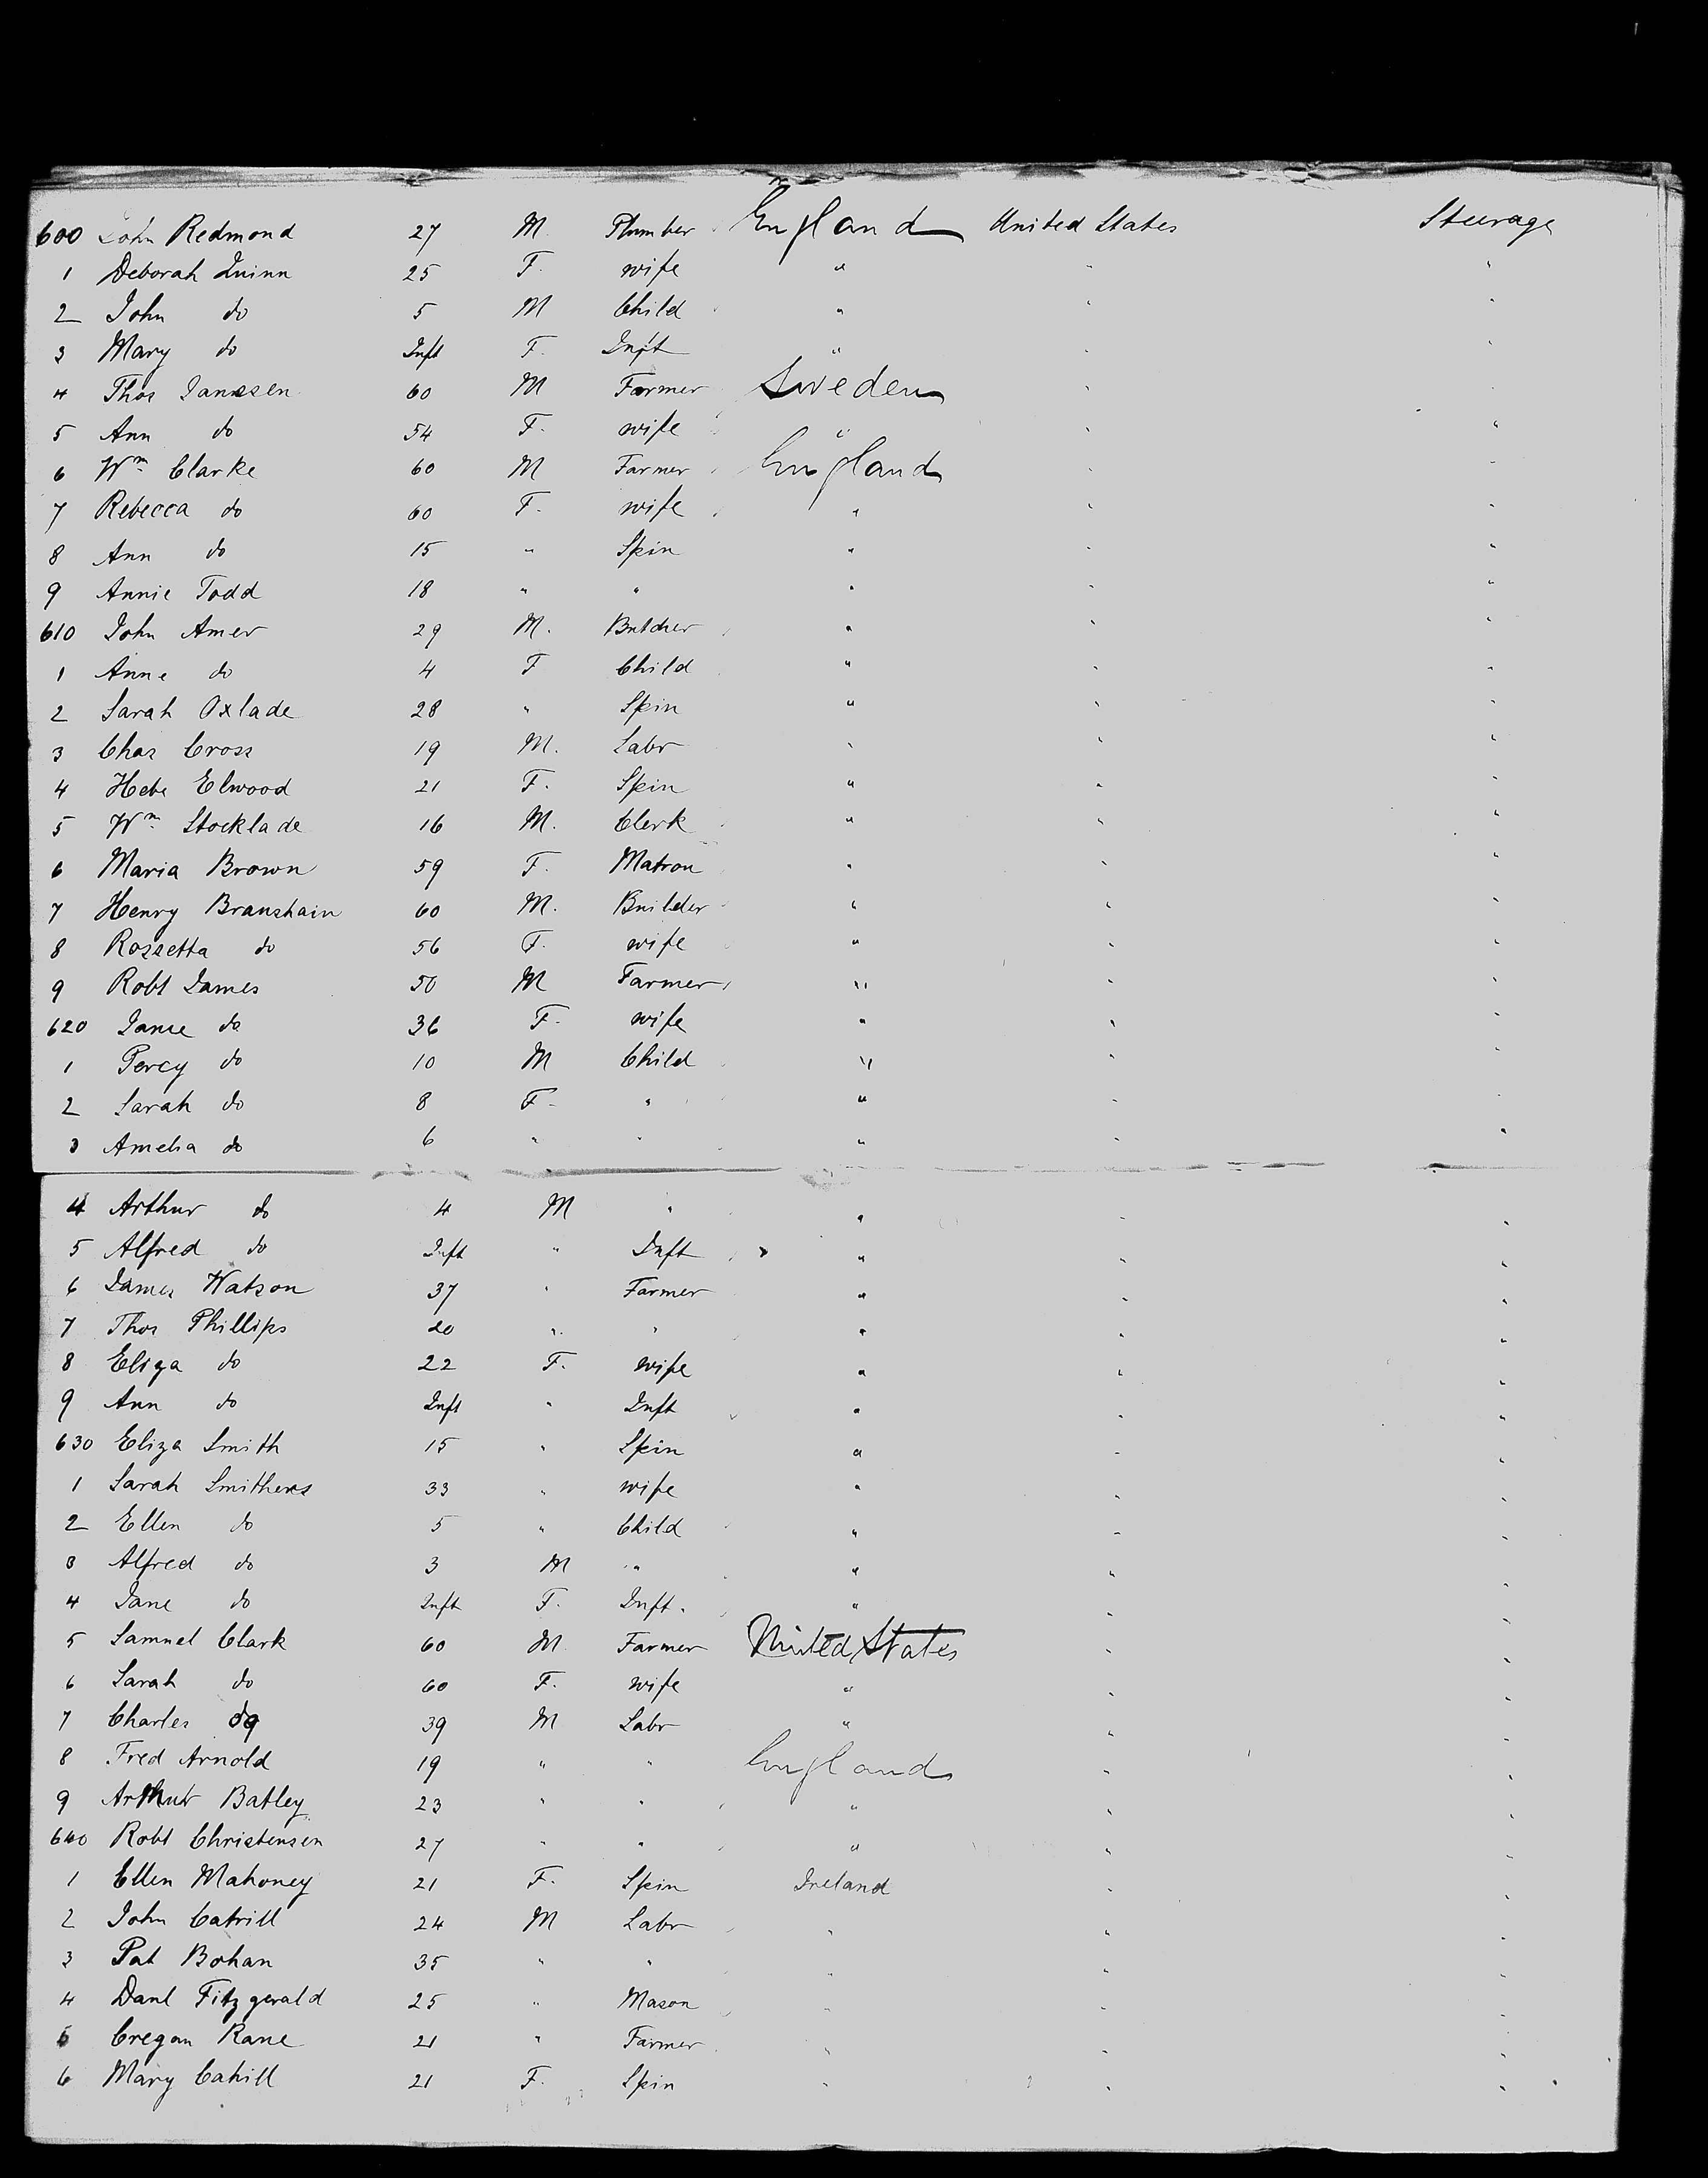 600 John Redmond 27 M. Plumber England United States Steerage
1 Deborah Quinn 25 F. wife " " "
2 John do 5 M Child " " "
3 Mary do Inft F. Inft " " "
4 Thos Janssen 60 M Farmer Sweden " "
5 Ann do 54 F. wife " " "
6 Wm Clarke 60 M Farmer England " "
7 Rebecca do 60 F. wife " " "
8 Ann do 15 " Spin " " "
9 Annie Todd 18 " " " " "
610 John Amer 29 M. Butcher " " "
1 Anne do 4 F Child " " "
2 Sarah Oxlade 28 " Spin " " "
3 Chas Cross 19 M. Labr " " "
4 Hebe Elwood 21 F. Spin " " "
5 Wm Stocklade 16 M. Clerk " " "
6 Maria Brown 59 F. Matron " " "
7 Henry Branshain 60 M. Builder " " "
8 Rossetta do 56 F. wife " " "
9 Robt James 50 M Farmer " " "
620 Jane do 36 F. wife " " "
1 Percy do 10 M Child " " "
2 Sarah do 8 F. " " " "
3 Amelia do 6 " " " " "
4 Arthur do 4 M " " " "
5 Alfred do Inft " Inft " " "
6 James Watson 37 " Farmer " " "
7 Thos Phillips 20 " " " " "
8 Eliza do 22 F. wife " " "
9 Ann do Inft " Inft " " "
630 Eliza Smith 15 " Spin " " "
1 Sarah Smithers 33 " wife " " "
2 Ellen do 5 " Child " " "
3 Alfred do 3 M " " " "
4 Jane do Inft F. Inft. " " "
5 Samuel Clark 60 M. Farmer United States " "
6 Sarah do 60 F. wife " " "
7 Charles do 39 M Labr " " "
8 Fred Arnold 19 " " England " "
9 Arthur Batley 23 " " " " "
640 Robt Christensen 27 " " " " "
1 Ellen Mahoney 21 F. Spin Ireland " "
2 John Cahill 24 M Labr " " "
3 Pat Bohan 35 " " " " "
4 Danl Fitzgerald 25 " Mason " " "
5 Cregan Kane 21 " Farmer " " "
6 Mary Cahill 21 F. Spin " " "